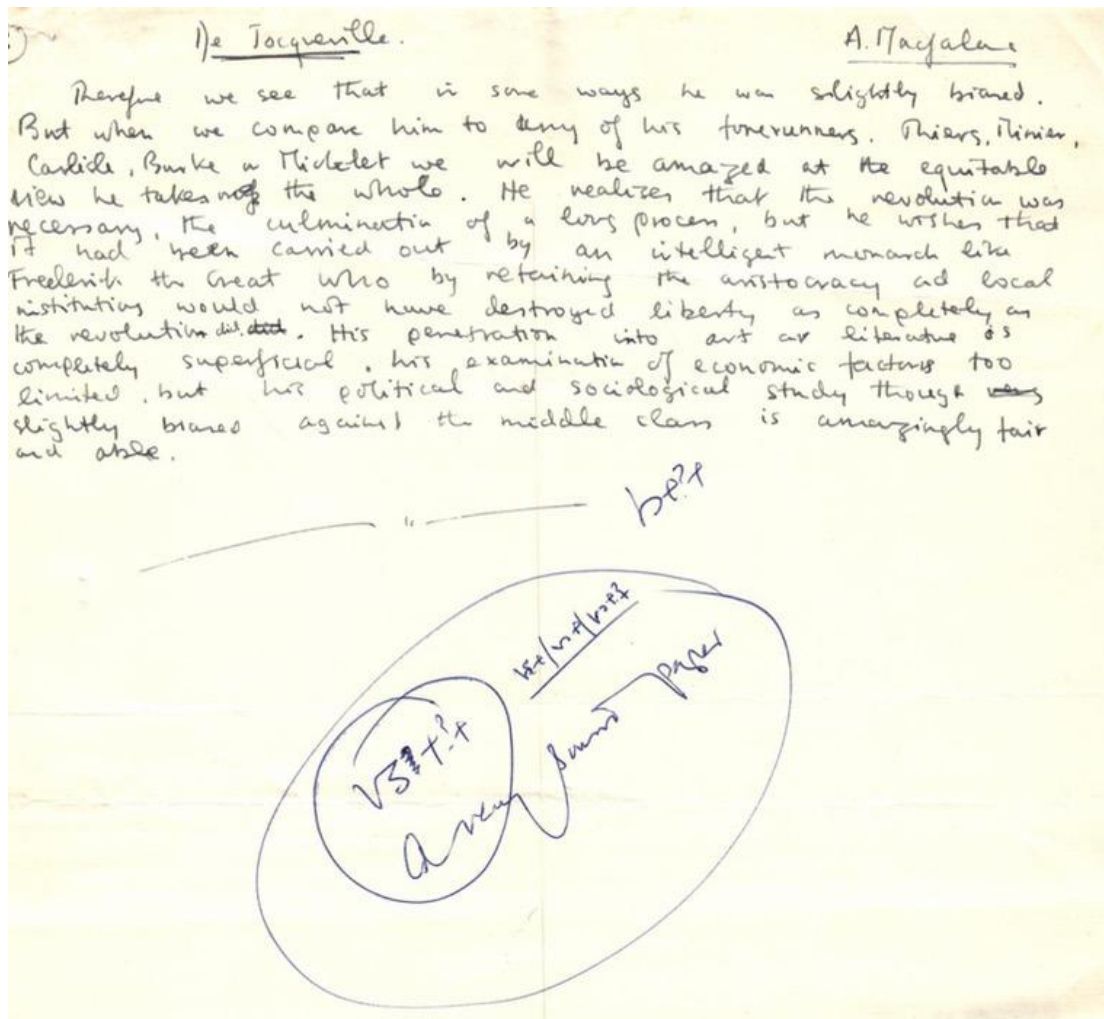 De Tocqueville. A. Macfarlane
Therefore we see that in some ways he was slightly biased.
But when we compare him to any of his forerunners. Thiers, Minier,
Carlisle, Burke or Michelet we will be amazed at the equitable
view he takes of the whole. He realizes that the revolution was
necessary, the culmination of a long process, but he wishes that
it had been carried out by an intelligent monarch like
Frederik the Great who by retaining the aristocracy and local
institutions would not have destroyed liberty as completely as
the revolution did. did. His penetration into art or literature is
completely superficial, his examination of economic factors too
limited, but his political and sociological study though very
slightly biased against the middle class is amazingly fair
and able.
b+?+
A very sound paper